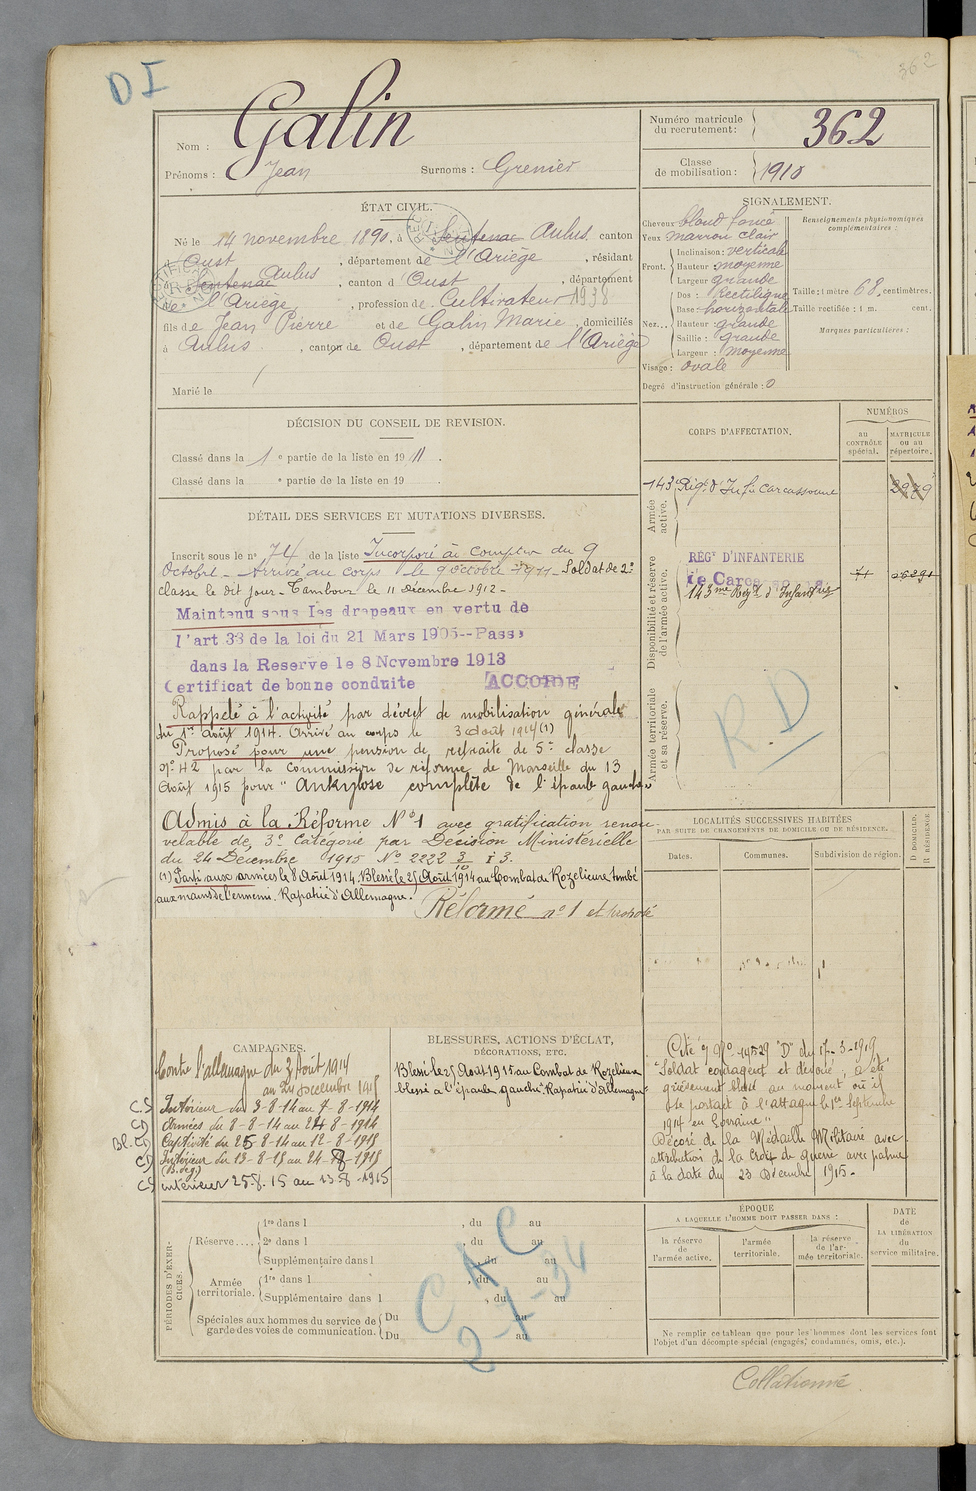 D I
362
Nom : Galin
Prénoms : Jean Surnoms : Grenier
Numéro matricule du recrutement : 362
Classe de mobilisation : 1910
ÉTAT CIVIL.
Né le 14 novembre 1890, à Sentenac Aulus, canton
Oust, département de l'Ariège, résidant
Sentenac Aulus, canton d'Oust, département
de l'Ariège, profession de Cultivateur 1938
fils de Jean Pierre et de Galin Marie, domiciliés
à Aulus, canton de Oust, département de l'Ariège
Marié le
SIGNALEMENT.
Cheveux blond foncé
Yeux marron clair
Front. Inclinaison : verticale
Hauteur moyenne
Largeur grande
Nez... Dos : Rectiligne
Base : horizontale
Hauteur : grande
Saillie : grande
Largeur : moyenne
Visage : ovale
Degré d'instruction générale : 0
Renseignements physionomiques complémentaires :
Taille : 1 mètre 68, centimètres.
Taille rectifiée : 1 m. cent.
Marques particulières :
DÉCISION DU CONSEIL DE REVISION.
Classé dans la 1e partie de la liste en 1911.
Classé dans la e partie de la liste en 19 .
DÉTAIL DES SERVICES ET MUTATIONS DIVERSES.
Inscrit sous le no 74 de la liste Incorporé à compter du 9
Octobre - Arrivé au corps le 9 octobre 1911 - Soldat de 2e
classe le dit jour - Tambour le 11 décembre 1912 -
Maintenu sous les drapeaux en vertu de
l'art 33 de la loi du 21 Mars 1905--Passé
dans la Reserve le 8 Novembre 1913
Certificat de bonne conduite ACCORDÉ
Rappelé à l'activité par décret de mobilisation générale
du 1er août 1914. Arrivé au corps le 3 août 1914 (1)
Proposé pour une pension de retraite de 5e classe
No 42 par la Commission de réforme de Marseille du 13
Août 1915 pour "Ankylose complète de l'épaule gauche"
Admis à la Réforme No 1 avec gratification renou-
velable de 3e Catégorie par Décision Ministérielle
du 24 Décembre 1915 No 2222
(1) Parti aux armées le 8 Août 1914. Blessé le 25 Août 1914 au Combat de Rozelieure tombé
aux mains de l'ennemi. Rapatrié d'Allemagne.
Réformé no 1 et
CORPS D'AFFECTATION.
NUMÉROS
au contrôle spécial.
MATRICULE ou au répertoire.
Armée active.
143e Rég. d'Infie Carcassonne 2979
Disponibilité et réserve de l'armée active.
RÉGT D'INFANTERIE
de Carcassonne 71
143me Régt d'Infanterie
Armée territoriale et sa réserve.
R.D
LOCALITÉS SUCCESSIVES HABITÉES
PAR SUITE DE CHANGEMENTS DE DOMICILE OU DE RÉSIDENCE.
Dates. Communes. Subdivision de région. D DOMICILE. R RÉSIDENCE.
CAMPAGNES.
Contre l'allemagne du 3 Août 1914
au 24 décembre 1915
Intérieur du 3-8-14 au 7-8-1914
Armées du 8-8-14 au 24-8-1914
Captivité du 25-8-14 au 12-8-1915
Intérieur du 13-8-15 au 24-8-1915
intérieur 25.8.15 au 13.8-1915
BLESSURES, ACTIONS D'ÉCLAT,
DÉCORATIONS, ETC.
Blessé le 25 Août 1915 au Combat de Rozelieure
blessé à l'épaule gauche. Rapatrié d'Allemagne
Cité No 14529 "D" du 17-3-1919
"Soldat courageux et dévoué, a été
grièvement blessé au moment où il
se portait à l'attaque le 1er Septembre
1914 en Lorraine"
Décoré de la Médaille Militaire avec
attribution de la Croix de guerre avec palme
à la date du 23 Décembre 1915.
PÉRIODES D'EXERCICES.
Réserve.... 1re dans l , du au
2e dans l , du au
Supplémentaire dans l , du au
Armée territoriale. 1re dans l , du au
Supplémentaire dans l , du au
Spéciales aux hommes du service de garde des voies de communication. Du au
Du au
C A C
2-7-34
ÉPOQUE
A LAQUELLE L'HOMME DOIT PASSER DANS :
la réserve de l'armée active.
l'armée territoriale.
la réserve de l'armée territoriale.
DATE de LA LIBÉRATION du service militaire.
Ne remplir ce tableau que pour les hommes dont les services font
l'objet d'un décompte spécial (engagés, condamnés, omis, etc.).
Collationné